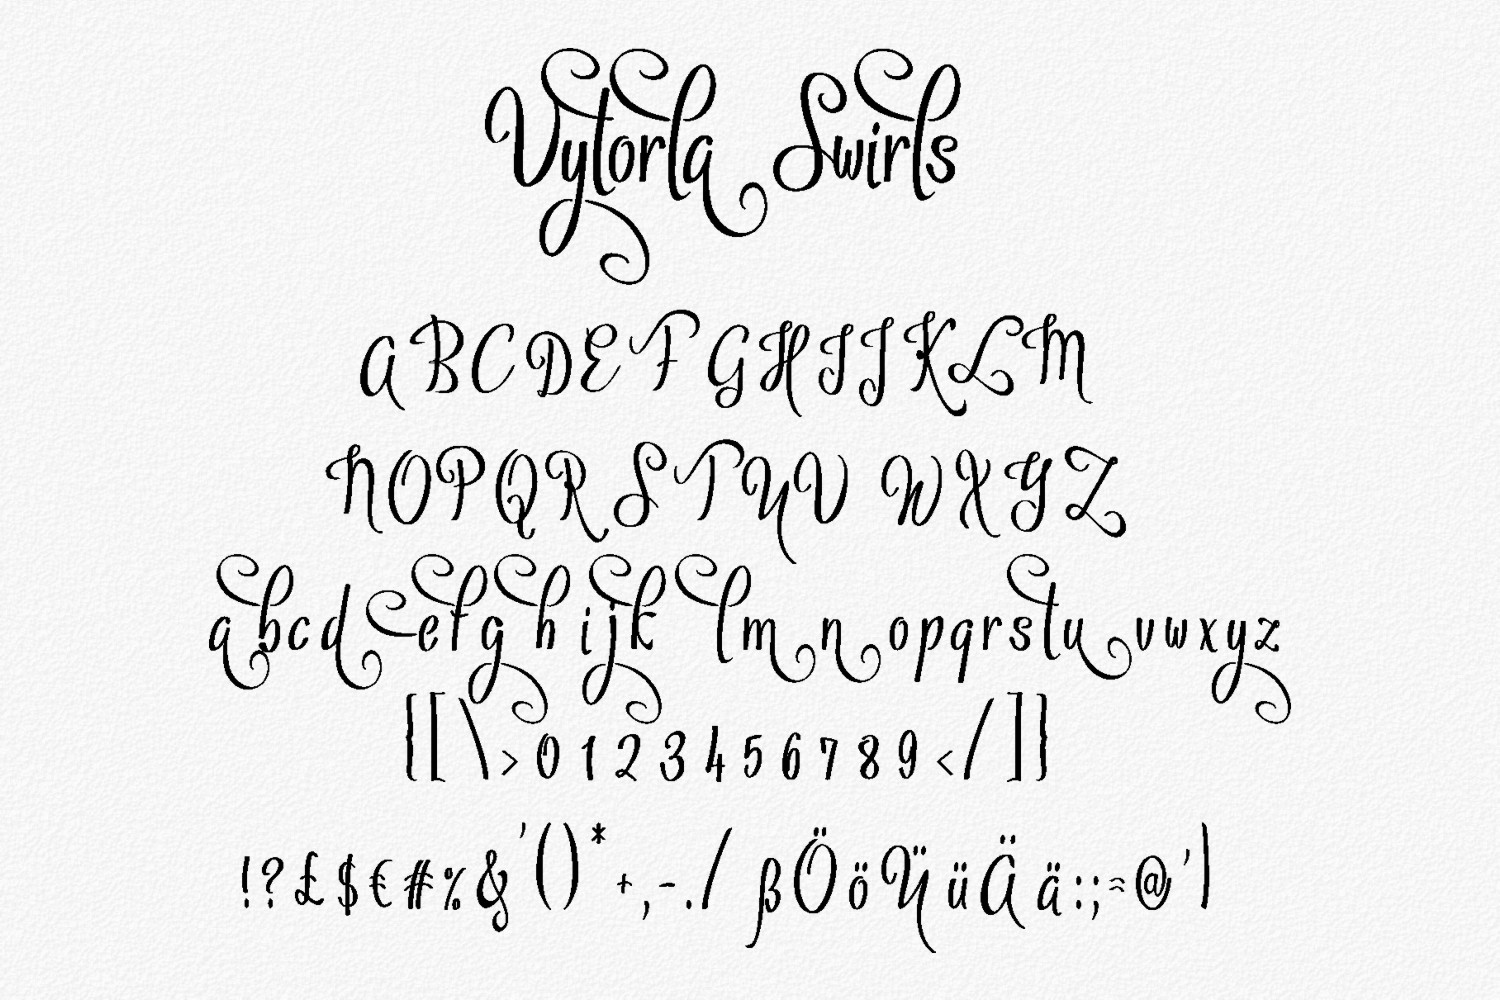 Vytorla Swirls
ABCDEFGHIJKLM
NOPQRSTUV WXYZ
abcdefghijklmnopqrstuvwxyz
{[\>0 1 2 3 4 5 6 7 8 9</]}
!?£$€#%&'()*+,-./ ßÖöÜüÄä:;~@'|